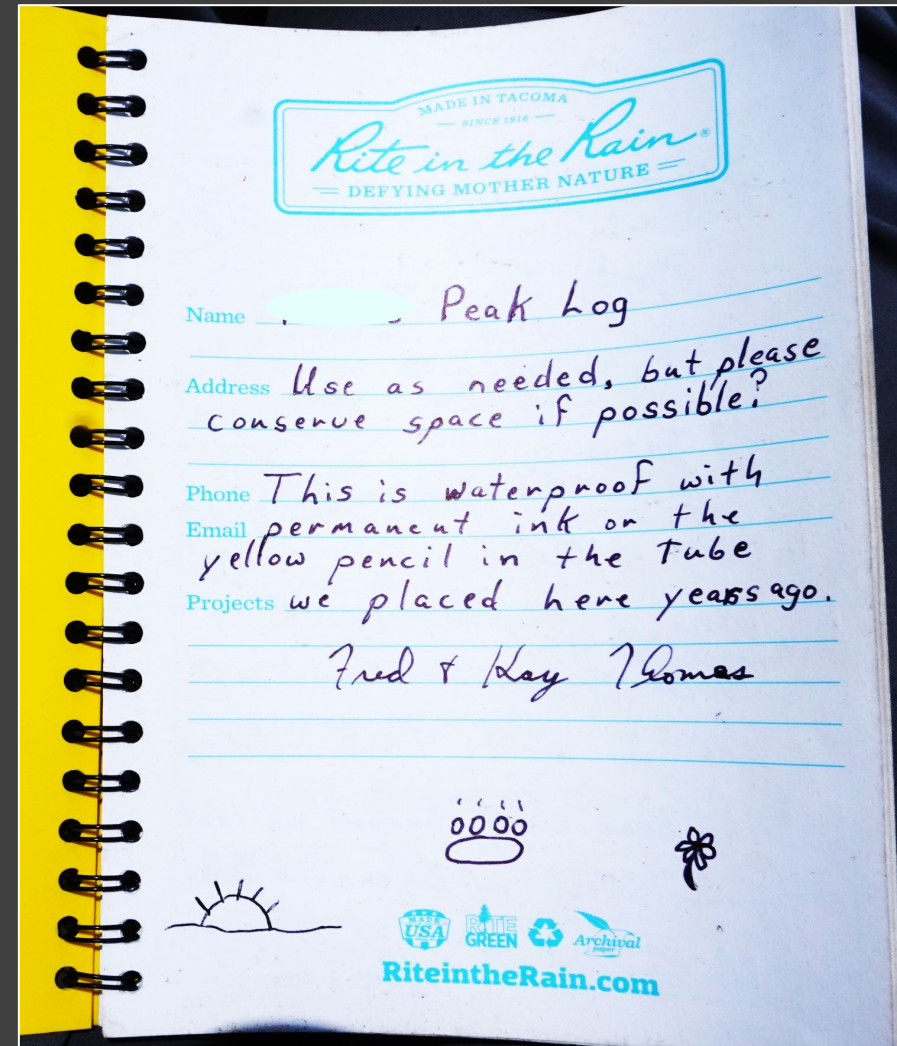 MADE IN TACOMA
SINCE 1916
Rite in the Rain®
DEFYING MOTHER NATURE
Name Peak Log
Address Use as needed, but please
conserve space if possible?
Phone This is waterproof with
Email permanent ink or the
yellow pencil in the Tube
Projects we placed here years ago.
Fred & Kay Thomas
MADE USA
RITE GREEN
Archival paper
RiteintheRain.com